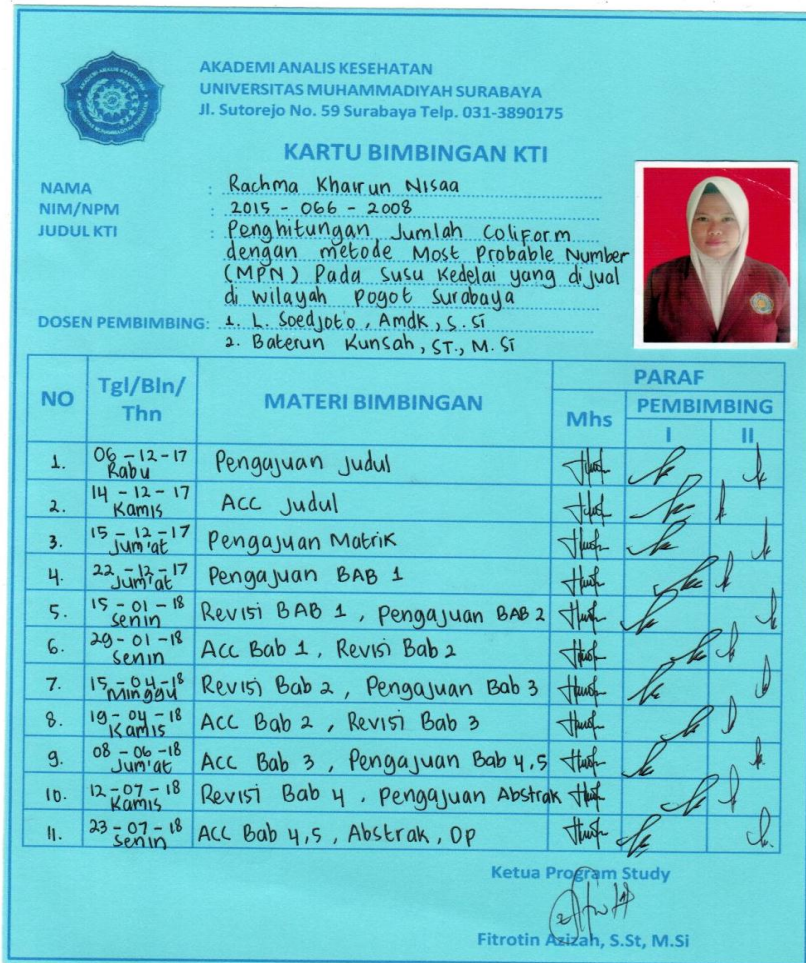 AKADEMI ANALIS KESEHATAN
UNIVERSITAS MUHAMMADIYAH SURABAYA
Jl. Sutorejo No. 59 Surabaya Telp. 031-3890175
KARTU BIMBINGAN KTI
NAMA : Rachma Khairun Nisaa
NIM/NPM : 2015 - 066 - 2008
JUDUL KTI : Penghitungan Jumlah Coliform
dengan metode Most Probable Number
(MPN) Pada Susu Kedelai yang dijual
di wilayah Pogot Surabaya
DOSEN PEMBIMBING: 1. L. Soedjoto, Amdk, S. Si
2. Baterun Kunsah, ST., M. Si
NO Tgl/Bln/Thn MATERI BIMBINGAN PARAF
Mhs PEMBIMBING
I II
1. 06 - 12 - 17 Rabu Pengajuan Judul
2. 14 - 12 - 17 Kamis ACC Judul
3. 15 - 12 - 17 Jum'at Pengajuan Matrik
4. 22 - 12 - 17 Jum'at Pengajuan BAB 1
5. 15 - 01 - 18 Senin Revisi BAB 1, Pengajuan BAB 2
6. 29 - 01 - 18 Senin Acc Bab 1, Revisi Bab 2
7. 15 - 04 - 18 Minggu Revisi Bab 2, Pengajuan Bab 3
8. 19 - 04 - 18 Kamis Acc Bab 2, Revisi Bab 3
9. 08 - 06 - 18 Jum'at Acc Bab 3, Pengajuan Bab 4,5
10. 12 - 07 - 18 Kamis Revisi Bab 4. Pengajuan Abstrak
11. 23 - 07 - 18 Senin ACC Bab 4,5, Abstrak, Dp
Ketua Program Study
Fitrotin Azizah, S.St, M.Si